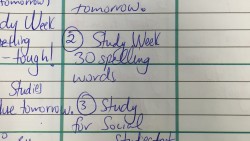 tomorrow.
dy Week
② Study Week
- tough!
30 spelling
words
Studies
ue tomorrow.
③ Study
for Social